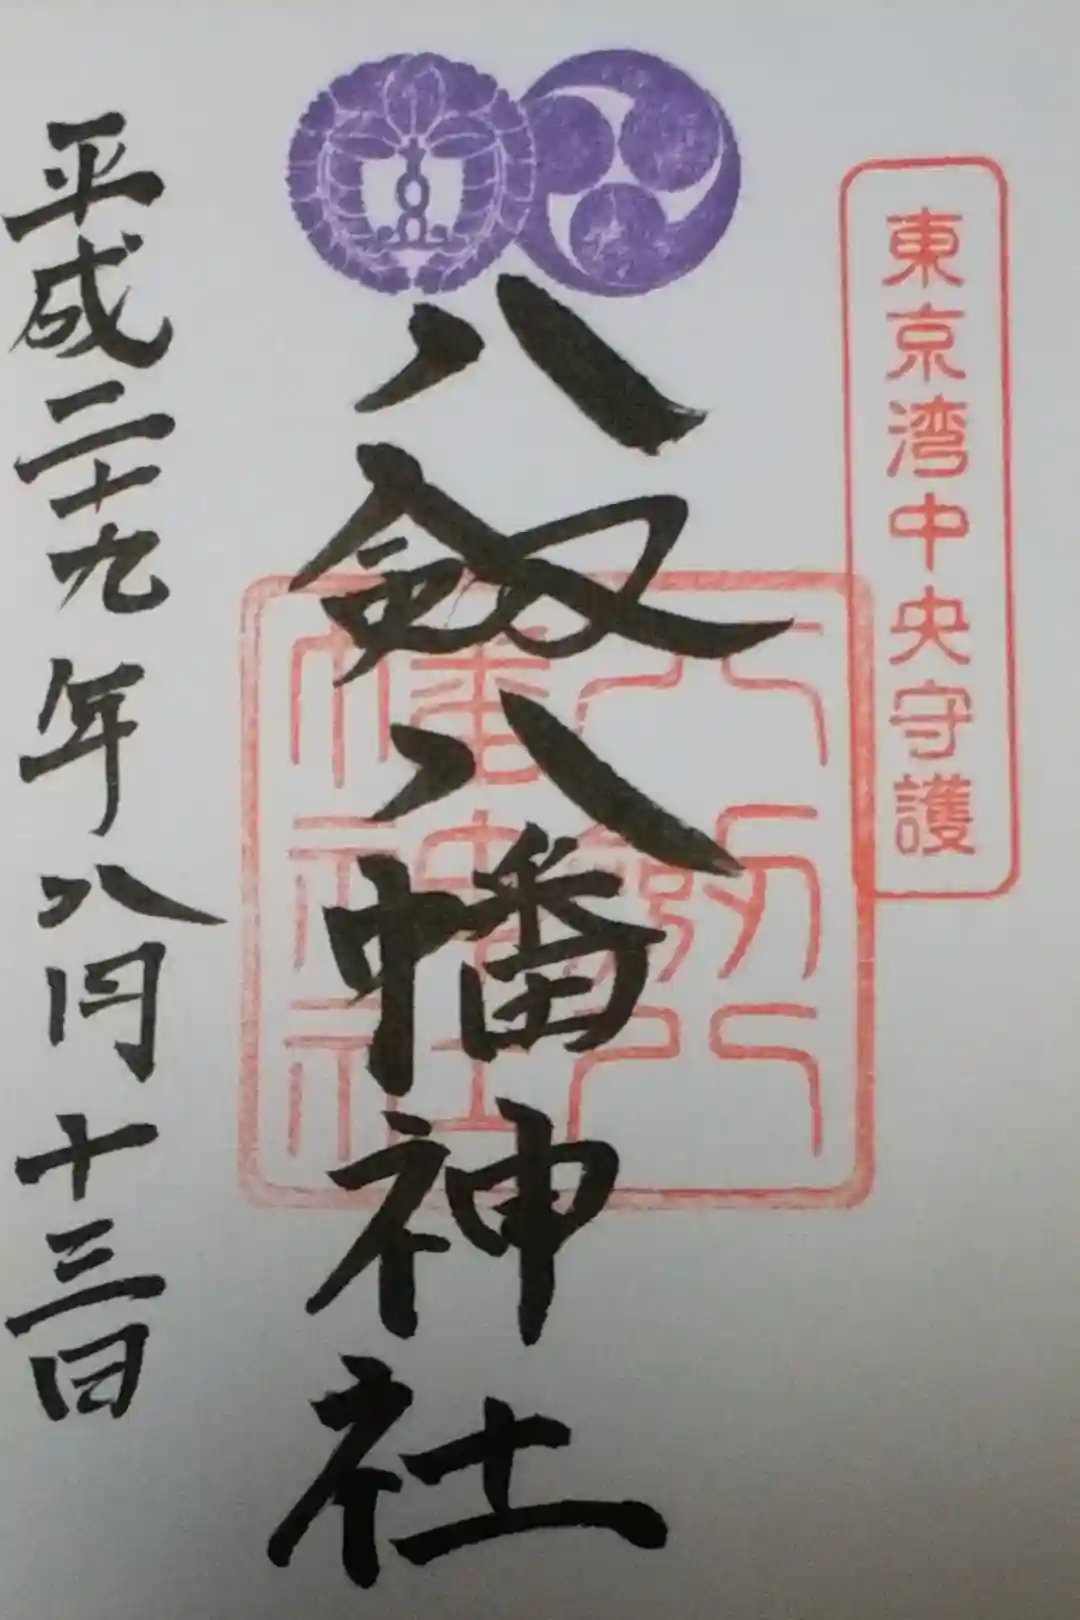 東京湾中央守護
八剱八幡神社
八剱八幡神社
平成二十九年八月十三日